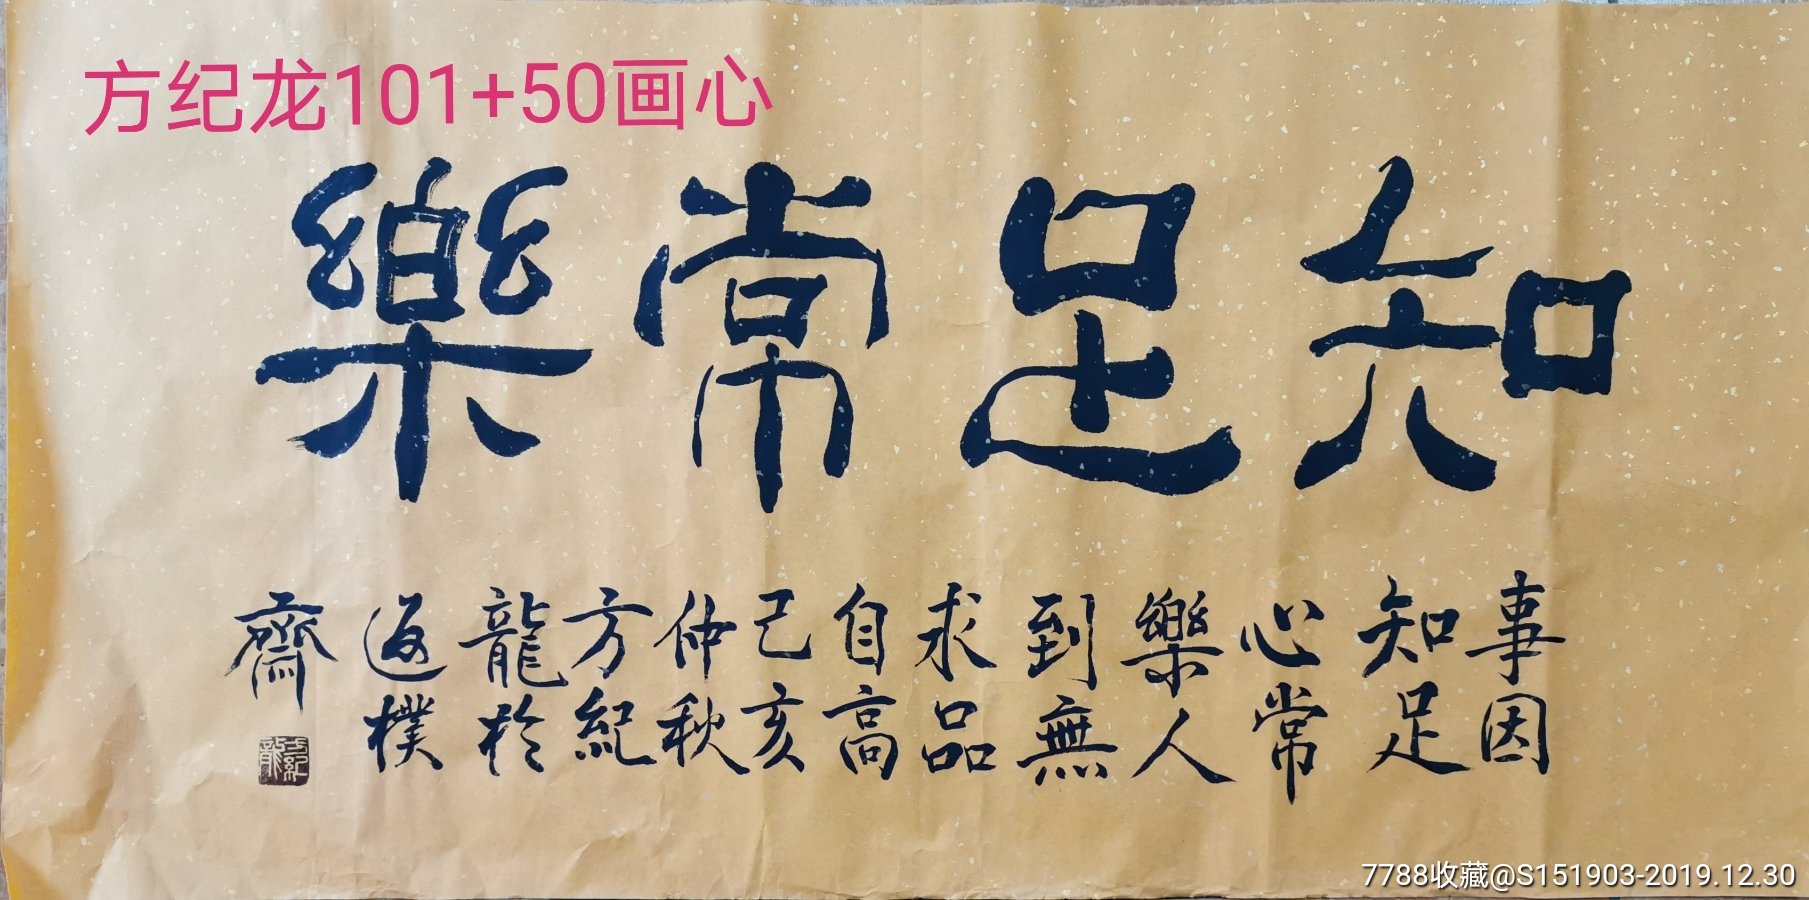 方纪龙101+50画心
知足常樂
事因
知足
心常
樂人
到無
求品
自高
己亥
仲秋
方紀
龍於
返樸
齋
方紀龍
7788收藏@S151903-2019.12.30